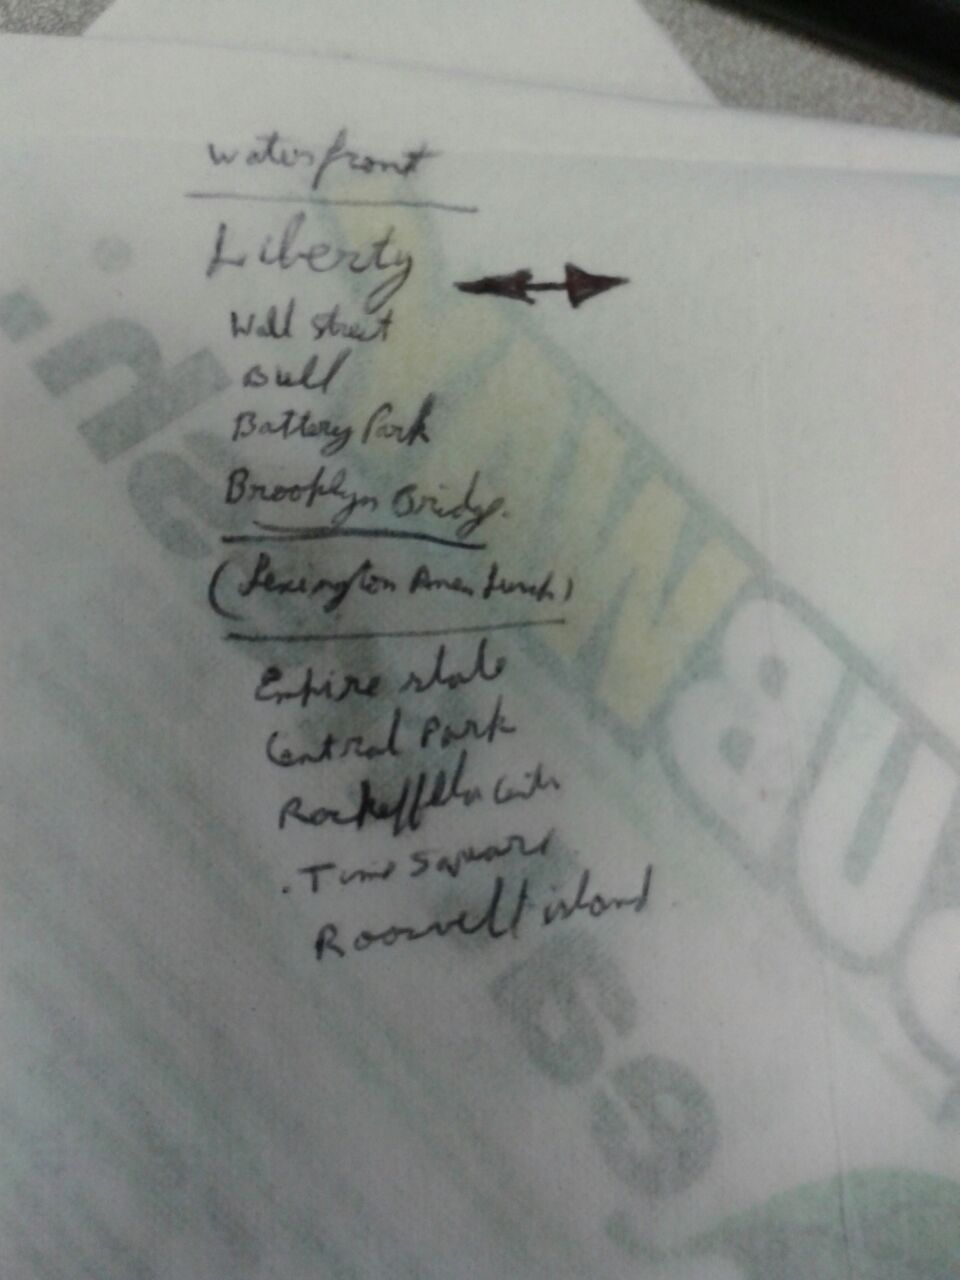 waterfront
Liberty
Wall street
Bull
Battery Park
Brooklyn Bridge.
(Lexington Aven Lunch)
Empire state
Central Park
Rockeffeler
. Time Square
Roosvelt island
SUBWAY